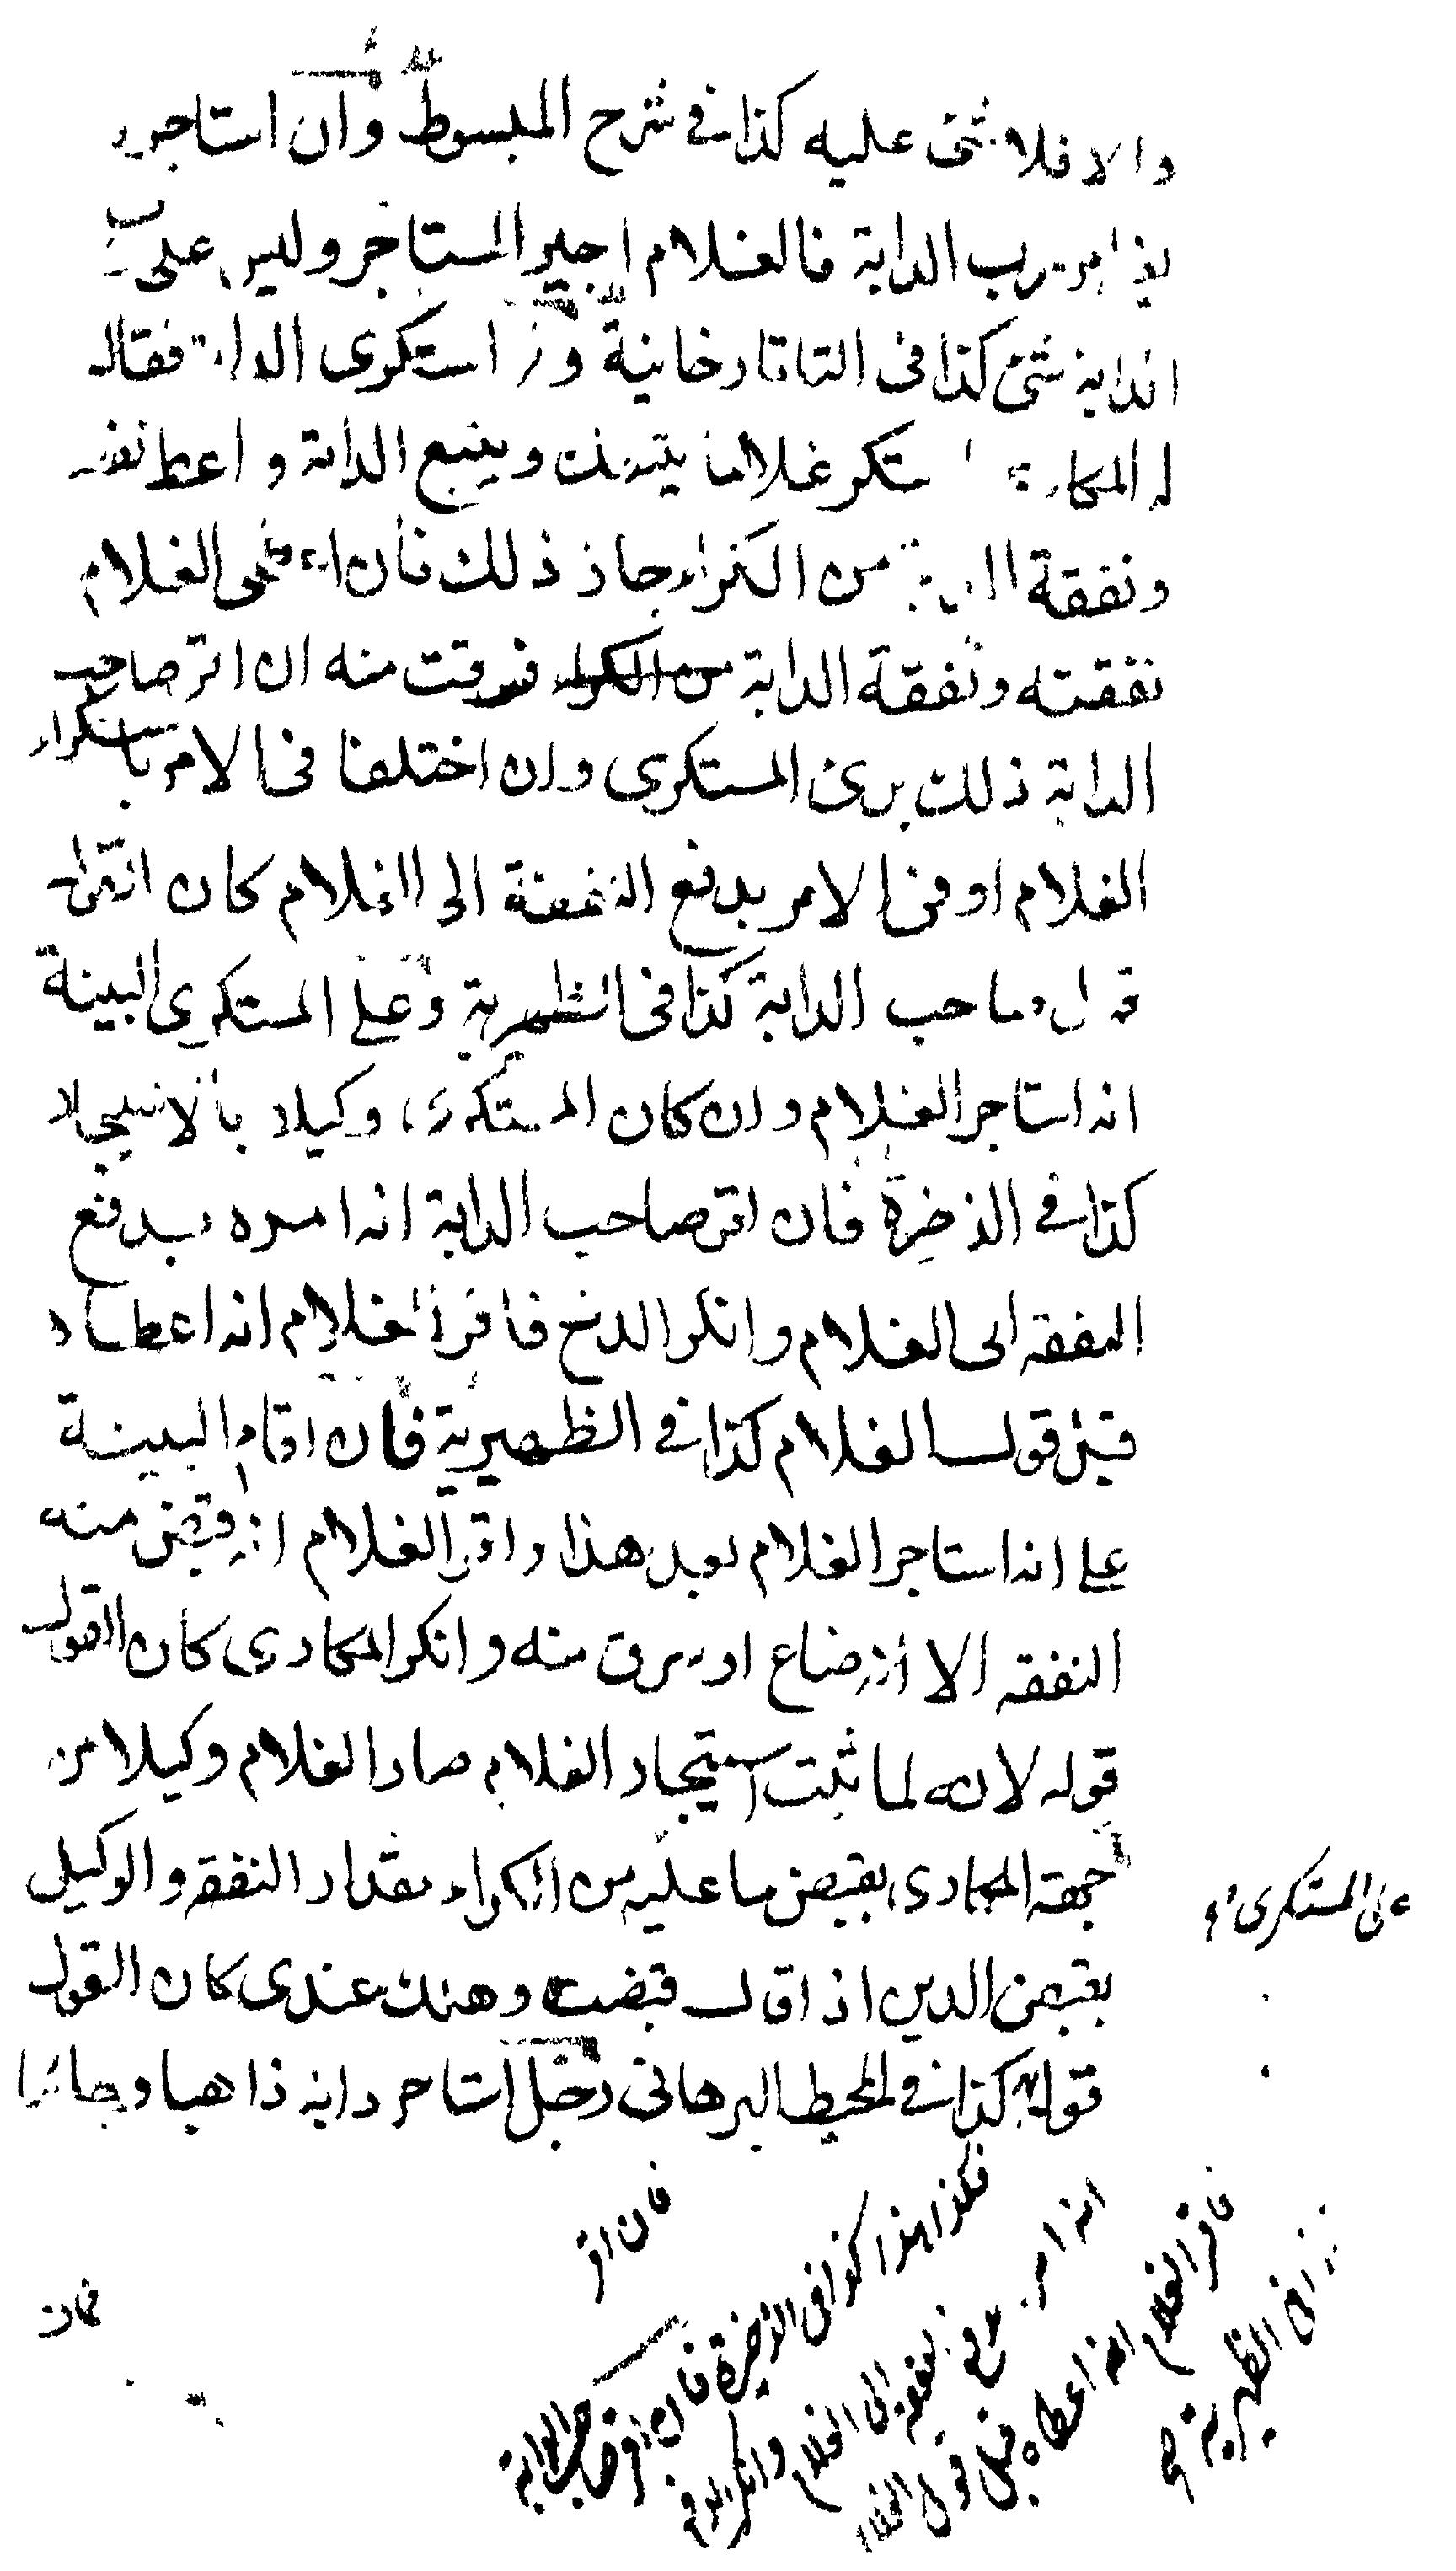 والا فلا شئ عليه كذا في شرح المبسوط وان استاجره
بغير امر رب الدابة فالغلام اجير المستاجر وليس على رب
الدابة شئ كذا فى التاتارخانية ولو استكرى الدابة فقال
له المكارى استكر غلاما يتبعك ويتبع الدابة واعط نفقته
ونفقة الدابة من الكراء جاز ذلك فان اعطى الغلام
نفقته ونفقة الدابة من الكراء فسرقت منه ان اقر صاحب
الدابة ذلك برئ المستكرى وان اختلفا فى الامر باستكراء
الغلام او فى الامر بدفع النفقة الى الغلام كان القول
قول صاحب الدابة كذا فى الظهيرية وعلى المستكرى البينة
انه استاجر الغلام وان كان المستكرى وكيلا بالاستيجار
كذا في الذخيرة فان اقر صاحب الدابة انه امره بدفع
النفقه الى الغلام وانكر الدفع فاقر الغلام انه اعطاه
قبل قول الغلام كذا في الظهيرية فان اقام البينة
على انه استاجر الغلام بعد هذا واقر الغلام انه قبض منه
النفقه الا انه ضاع او سرق منه وانكر المكارى كان القول
قوله لانه لما ثبت استيجار الغلام صار الغلام وكيلا من
جهة المكارى بقبض ما عليه من الكراء مقدار النفقه والوكيل
بقبض الدين اذا قال قبضت وهلك عندى كان القول
قوله كذا في المحيط البرهانى رجل استاجر دابة ذاهبا وجائيا
على المستكرى
فان اقر
فكذا هذا كذا فى الذخيرة فان اقر صاحب الدابة
انه امره بدفع النفقه الى الغلام وانكر الدفع
فاقر الغلام انه اعطاه قبل قول الغلام
كذا فى الظهيرية صح